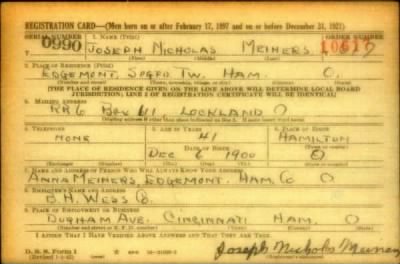 REGISTRATION CARD—(Men born on or after February 17, 1897 and on or before December 31, 1921)
SERIAL NUMBER 1. NAME (Print) ORDER NUMBER
T 0990 JOSEPH NICHOLAS MEINERS
(First) (Middle) (Last)
2. PLACE OF RESIDENCE (Print)
EDGEMONT, SPGFD TW. HAM. O.
(Number and street) (Town, township, village, or city) (County) (State)
[THE PLACE OF RESIDENCE GIVEN ON THE LINE ABOVE WILL DETERMINE LOCAL BOARD
JURISDICTION; LINE 2 OF REGISTRATION CERTIFICATE WILL BE IDENTICAL]
3. MAILING ADDRESS
RR 6 BOX 41 LOCKLAND O
[Mailing address if other than place indicated on line 2. If same insert word same]
4. TELEPHONE 5. AGE IN YEARS 6. PLACE OF BIRTH
NONE 41 HAMILTON
DATE OF BIRTH (Town or county)
DEC 6 1900 O
(Exchange) (Number) (Mo.) (Day) (Yr.) (State or country)
7. NAME AND ADDRESS OF PERSON WHO WILL ALWAYS KNOW YOUR ADDRESS
ANNA MEINERS EDGEMONT. HAM. CO O
8. EMPLOYER'S NAME AND ADDRESS
B. H. WESS CO.
9. PLACE OF EMPLOYMENT OR BUSINESS
DURHAM AVE. CINCINNATI HAM. O
(Number and street or R. F. D. number) (Town) (County) (State)
I AFFIRM THAT I HAVE VERIFIED ABOVE ANSWERS AND THAT THEY ARE TRUE.
D. S. S. FORM 1
(Revised 1-1-42) (over)
Joseph Nicholas Meiners